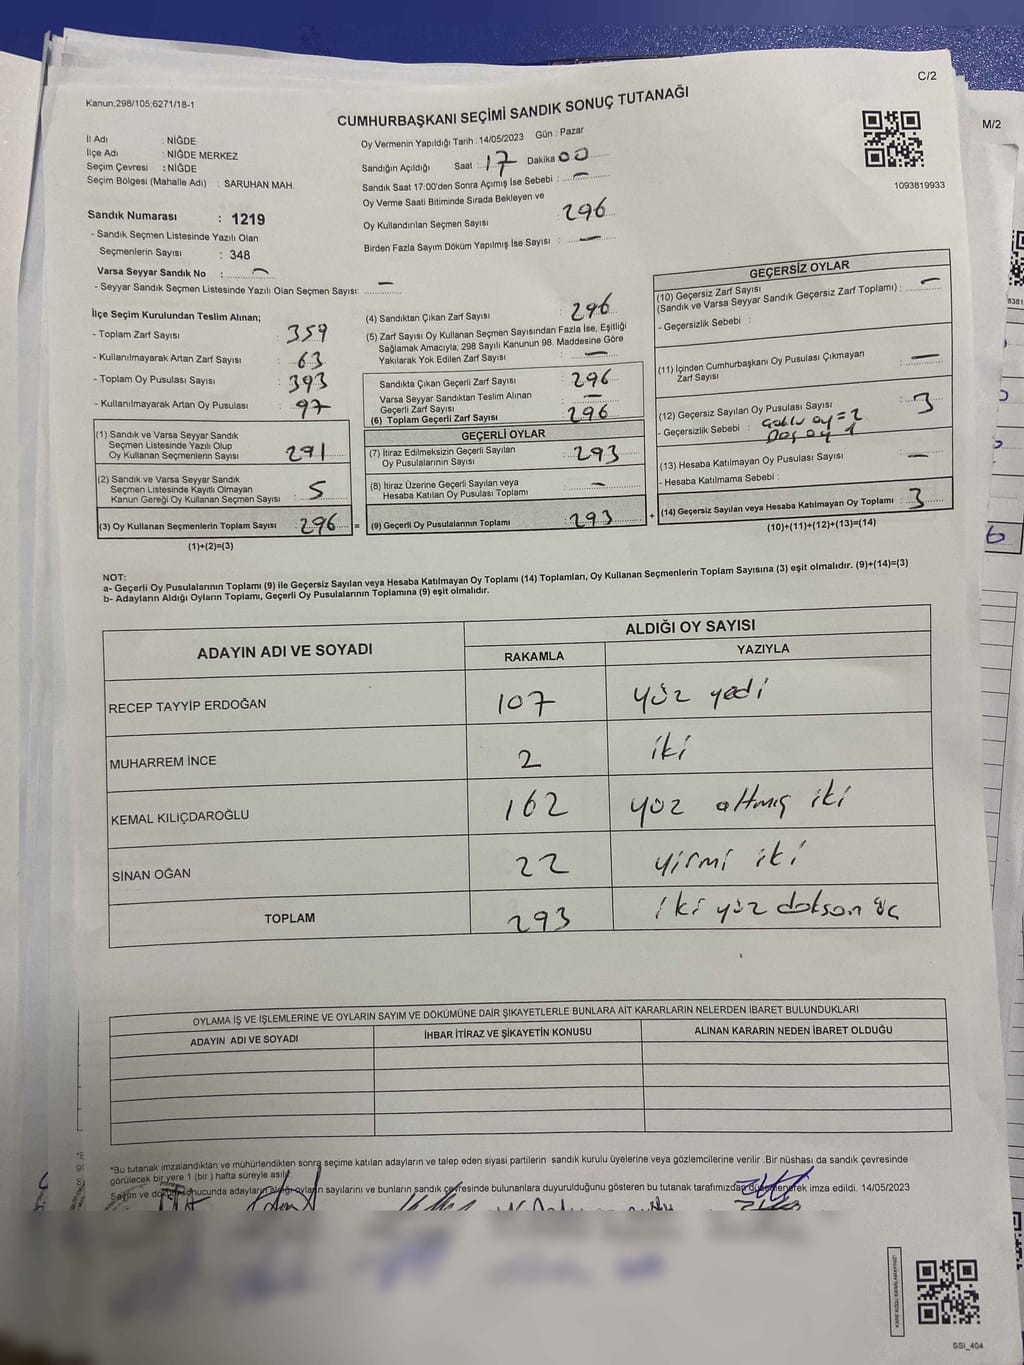 C/2
Kanun;298/105;6271/18-1
CUMHURBAŞKANI SEÇİMİ SANDIK SONUÇ TUTANAĞI
M/2
İl Adı : NİĞDE
İlçe Adı : NİĞDE MERKEZ
Seçim Çevresi : NİĞDE
Seçim Bölgesi (Mahalle Adı) : SARUHAN MAH.
Oy Vermenin Yapıldığı Tarih : 14/05/2023 Gün : Pazar
Sandığın Açıldığı Saat : 17 Dakika 00
Sandık Saat 17:00'den Sonra Açımış İse Sebebi : —
Oy Verme Saati Bitiminde Sırada Bekleyen ve
Oy Kullandırılan Seçmen Sayısı : 296
Birden Fazla Sayım Döküm Yapılmış İse Sayısı : —
1093819933
Sandık Numarası : 1219
- Sandık Seçmen Listesinde Yazılı Olan
Seçmenlerin Sayısı : 348
Varsa Seyyar Sandık No : —
- Seyyar Sandık Seçmen Listesinde Yazılı Olan Seçmen Sayısı: —
İlçe Seçim Kurulundan Teslim Alınan;
- Toplam Zarf Sayısı : 359
- Kullanılmayarak Artan Zarf Sayısı : 63
- Toplam Oy Pusulası Sayısı : 393
- Kullanılmayarak Artan Oy Pusulası : 97
(1) Sandık ve Varsa Seyyar Sandık
Seçmen Listesinde Yazılı Olup
Oy Kullanan Seçmenlerin Sayısı : 291
(2) Sandık ve Varsa Seyyar Sandık
Seçmen Listesinde Kayıtlı Olmayan
Kanun Gereği Oy Kullanan Seçmen Sayısı : 5
(3) Oy Kullanan Seçmenlerin Toplam Sayısı : 296 =
(1)+(2)=(3)
(4) Sandıktan Çıkan Zarf Sayısı : 296
(5) Zarf Sayısı Oy Kullanan Seçmen Sayısından Fazla İse, Eşitliği
Sağlamak Amacıyla; 298 Sayılı Kanunun 98. Maddesine Göre
Yakılarak Yok Edilen Zarf Sayısı : —
Sandıkta Çıkan Geçerli Zarf Sayısı : 296
Varsa Seyyar Sandıktan Teslim Alınan
Geçerli Zarf Sayısı : —
(6) Toplam Geçerli Zarf Sayısı : 296
GEÇERLİ OYLAR
(7) İtiraz Edilmeksizin Geçerli Sayılan
Oy Pusulalarının Sayısı : 293
(8) İtiraz Üzerine Geçerli Sayılan veya
Hesaba Katılan Oy Pusulası Toplamı : —
(9) Geçerli Oy Pusulalarının Toplamı : 293 +
GEÇERSİZ OYLAR
(10) Geçersiz Zarf Sayısı
(Sandık ve Varsa Seyyar Sandık Geçersiz Zarf Toplamı) : —
- Geçersizlik Sebebi :
(11) İçinden Cumhurbaşkanı Oy Pusulası Çıkmayan
Zarf Sayısı : —
(12) Geçersiz Sayılan Oy Pusulası Sayısı : 3
- Geçersizlik Sebebi : oy = 2
Boş oy 1
(13) Hesaba Katılmayan Oy Pusulası Sayısı : —
- Hesaba Katılmama Sebebi :
(14) Geçersiz Sayılan veya Hesaba Katılmayan Oy Toplamı : 3
(10)+(11)+(12)+(13)=(14)
NOT:
a- Geçerli Oy Pusulalarının Toplamı (9) ile Geçersiz Sayılan veya Hesaba Katılmayan Oy Toplamı (14) Toplamları, Oy Kullanan Seçmenlerin Toplam Sayısına (3) eşit olmalıdır. (9)+(14)=(3)
b- Adayların Aldığı Oyların Toplamı, Geçerli Oy Pusulalarının Toplamına (9) eşit olmalıdır.
ADAYIN ADI VE SOYADI
ALDIĞI OY SAYISI
RAKAMLA YAZIYLA
RECEP TAYYİP ERDOĞAN 107 yüz yedi
MUHARREM İNCE 2 iki
KEMAL KILIÇDAROĞLU 162 yüz altmış iki
SİNAN OĞAN 22 yirmi iki
TOPLAM 293 iki yüz doksan üç
OYLAMA İŞ VE İŞLEMLERİNE VE OYLARIN SAYIM VE DÖKÜMÜNE DAİR ŞİKAYETLERLE BUNLARA AİT KARARLARIN NELERDEN İBARET BULUNDUKLARI
ADAYIN ADI VE SOYADI İHBAR İTİRAZ VE ŞİKAYETİN KONUSU ALINAN KARARIN NEDEN İBARET OLDUĞU
*Bu tutanak imzalandıktan ve mühürlendikten sonra seçime katılan adayların ve talep eden siyasi partilerin sandık kurulu üyelerine veya gözlemcilerine verilir .Bir nüshası da sandık çevresinde
görülecek bir yere 1 (bir ) hafta süreyle asılır.
Sayım ve döküm sonucunda adayların aldığı oyların sayılarını ve bunların sandık çevresinde bulunanlara duyurulduğunu gösteren bu tutanak tarafımızdan düzenlenerek imza edildi. 14/05/2023
SSI_404